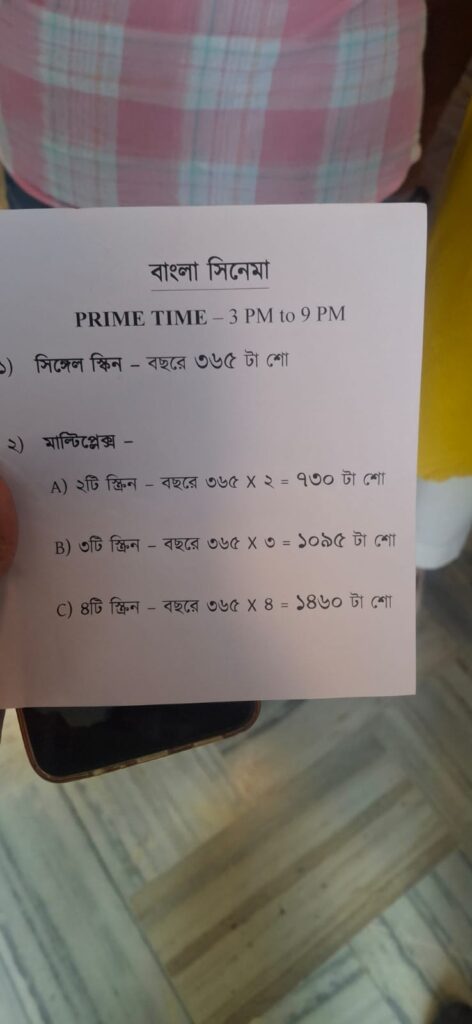 বাংলা সিনেমা
PRIME TIME – 3 PM to 9 PM
১) সিঙ্গেল স্কিন – বছরে ৩৬৫ টা শো
২) মাল্টিপ্লেক্স –
A) ২টি স্ক্রিন – বছরে ৩৬৫ X ২ = ৭৩০ টা শো
B) ৩টি স্ক্রিন – বছরে ৩৬৫ X ৩ = ১০৯৫ টা শো
C) ৪টি স্ক্রিন – বছরে ৩৬৫ X ৪ = ১৪৬০ টা শো